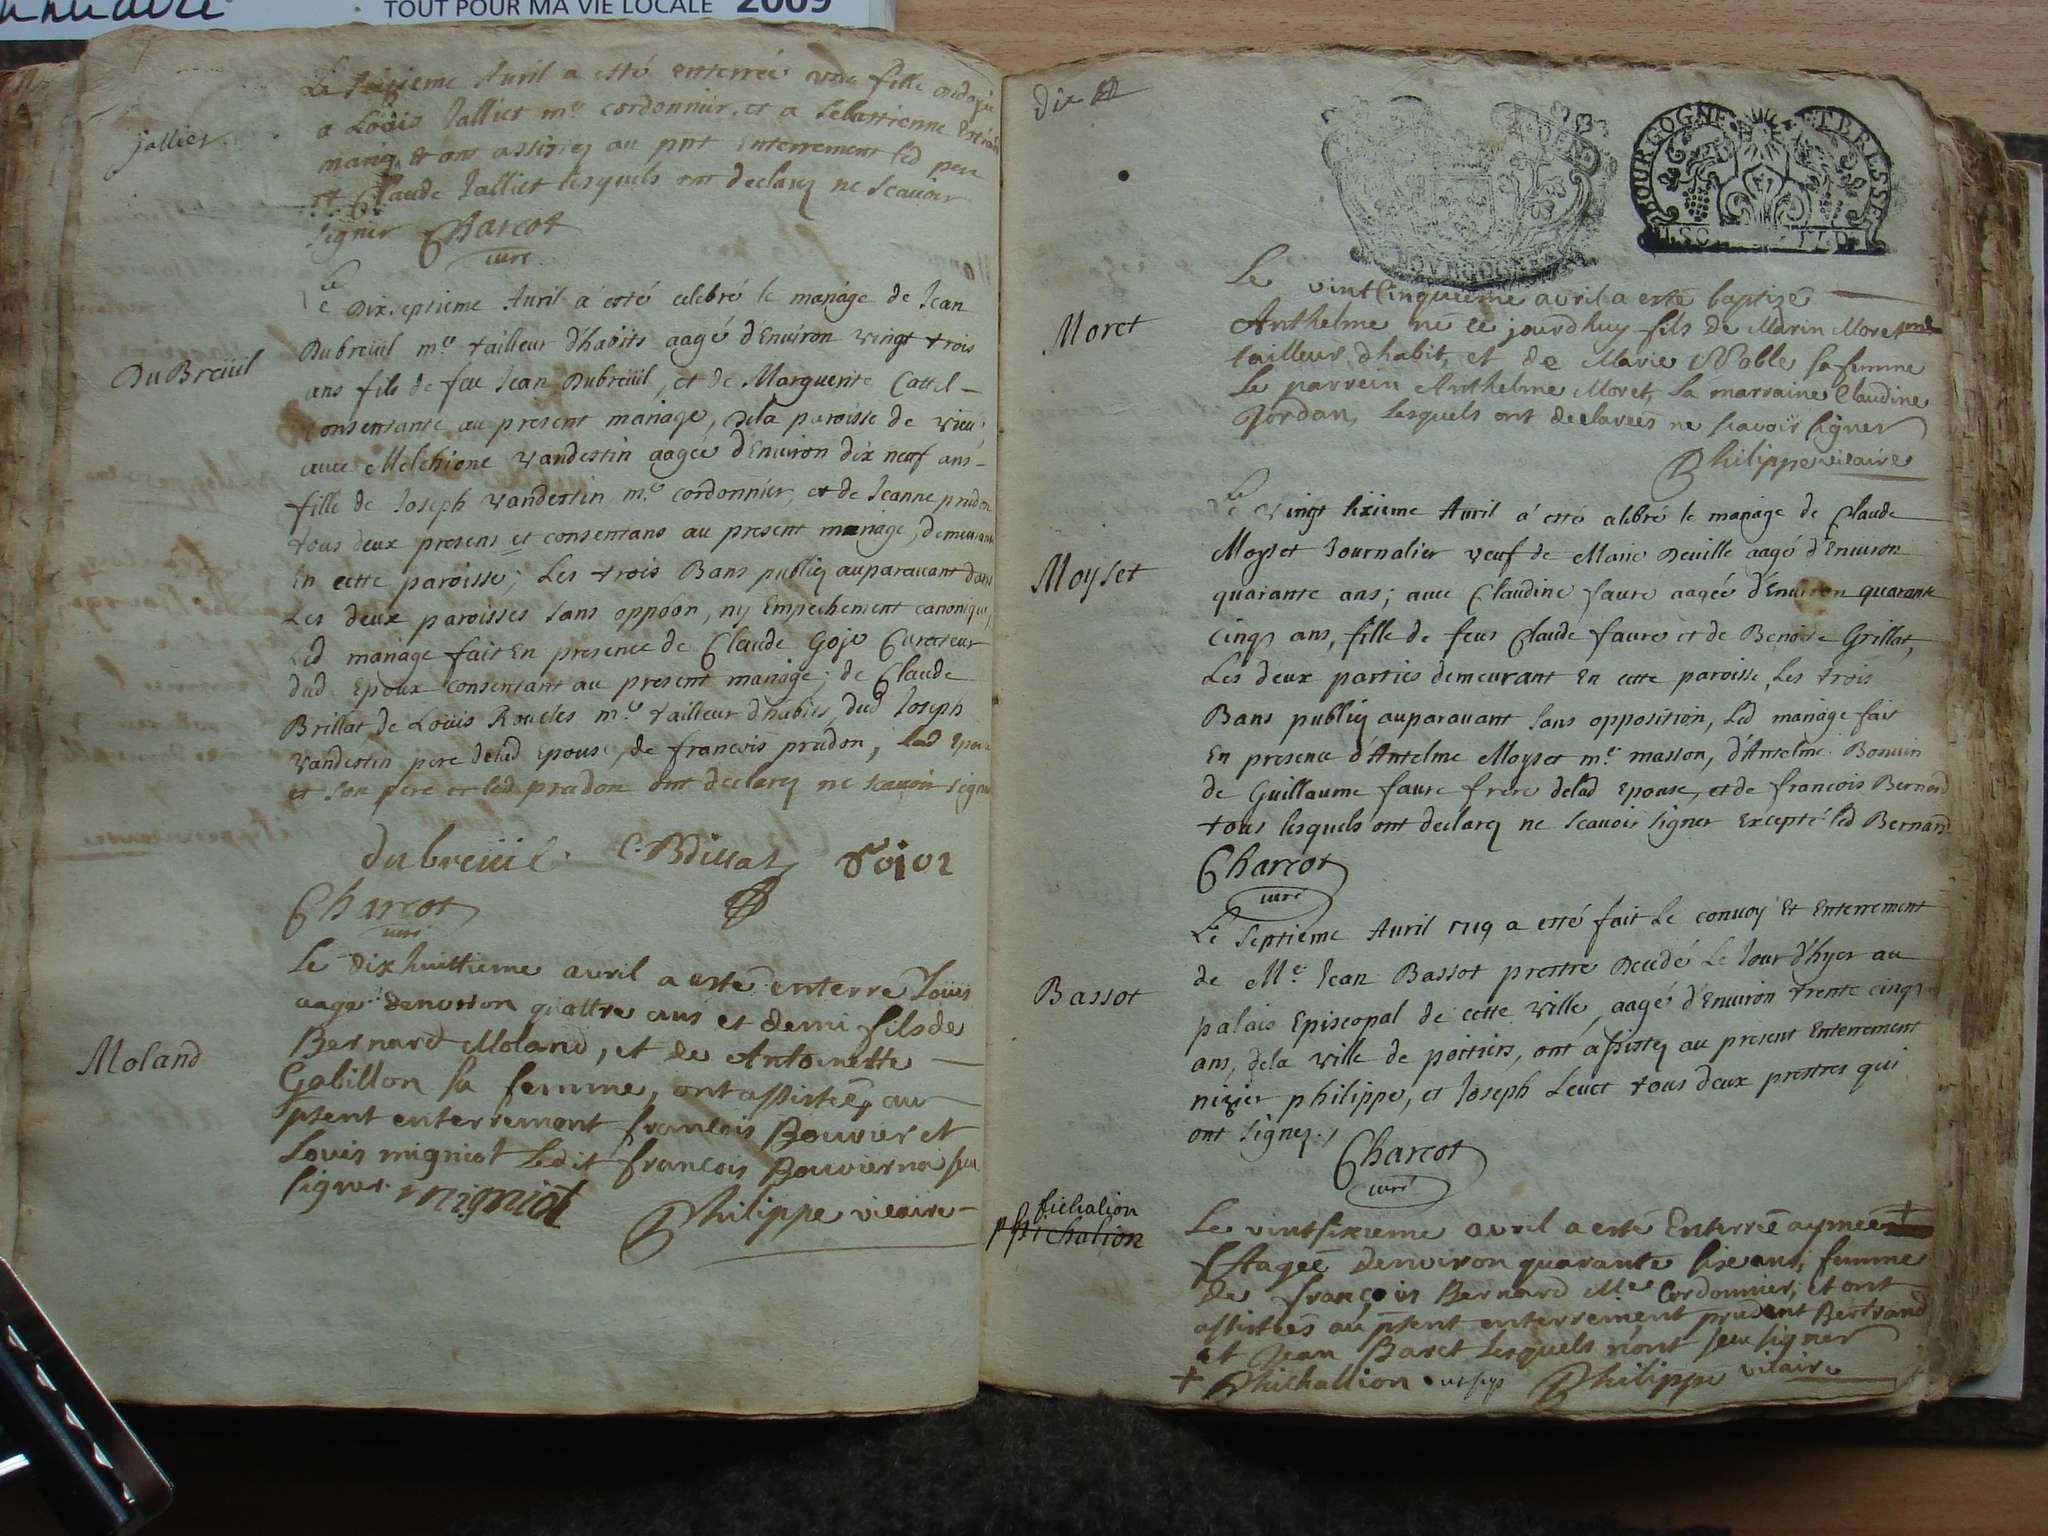 TOUT POUR MA VIE LOCALE 2009
jallier
Le seizieme Avril a esté enterrée une fille ondoyée
a Loüis Jallier m.e cordonnier, et a Sebastienne
mariez et ont assistez au pnt Enterrement led pere
et Claude Jallier lesquels ont declarez ne scauoir
signer Charcot
curé
DuBreüil
Le Dix.septieme Avril a esté celebré le mariage de Jean
Dubreüil m.e tailleur d'habits aagé d'Enuiron vingt trois
ans fils de feu Jean Dubreüil, et de Marguerite Cattel
consentante au present mariage, dela paroisse de vieu,
auec Melchione vandestin aagée d'Enuiron dix neuf ans
fille de Joseph vandestin m.e cordonnier, et de Jeanne prudon
tous deux presens et consentans au present mariage, demeurants
En cette paroisse; Les trois Bans publiez auparauant dans
Les deux paroisses sans oppoon, ny Empechement canonique,
Led mariage fait En presence de Claude Gojo Curateur
dud Epoux consentant au present mariage; de Claude
Brillat de Loüis Roucles m.e tailleur d'habits, dud Joseph
vandestin pere delad Epouse, de francois prudon, lad Epouse
et son pere et led prudon ont declarez ne scauoir signer
dubreüil C. Brillat Goior
Charcot
curé
Moland
Le dixhuittieme avril a esté enterré Louis
aagé denviron quattre ans et demi fils de
Bernard Moland, et de Antoinette
Gabillon sa femme, ont assistéez au
psent enterrement francois Bouvier et
Louis migniot Ledit francois Bouvier na sceu
signer migniot
Philippe vicaire
dix
BOURGOGNE
BOURGOGNE ET BRESSE
Moret
Le vintcinquieme avril a esté baptizé
Anthelme né ce jourdhuy fils de Marin Moret me
tailleur dhabit, et de Marie Noble sa femme
Le parrein Anthelme Moret, La marraine Claudine
Jordan, Lesquels ont declarees ne scavoir signer
Philippe vicaire
Moyset
Le vingt sixieme Avril a esté celebré le mariage de Claude
Moyset Journalier veuf de Marie Deuille aagé d'Enuiron
quarante ans; auec Claudine faure aagée d'Enuiron quarante
cinq ans, fille de feus Claude faure et de Benoite Grillat,
Les deux parties demeurant En cette paroisse, Les trois
Bans publiez auparauant sans opposition, Led mariage fait
En presence d'Antelme Moyset m.e masson, d'Antelme Bonuin
de Guillaume faure frere delad Epouse, et de francois Bernard
tous lesquels ont declarez ne scauoir signer Excepté led Bernard
Charcot
curé
Bassot
Le septieme Avril 1719 a esté fait Le conuoy Et Enterrement
de M.e Jean Bassot prestre Decedé Le Jour d'hyer au
palais Episcopal de cette ville, aagé d'Enuiron trente cinq
ans, dela ville de poitiers, ont assistez au present Enterrement
nizier philippe, et Joseph Leuet tous deux prestres qui
ont signez.
Charcot
curé
fichalion
Le vintsixieme avril a esté Enterrée aymée +
Aagée denviron quarante six ans, femme
de françois Bernard Me Cordonnier, et ont
assistees au psent enterrement prudent Bertrand
et Jean Baret Lesquels n'ont sceu signer
+ Phichallion Philippe vicaire